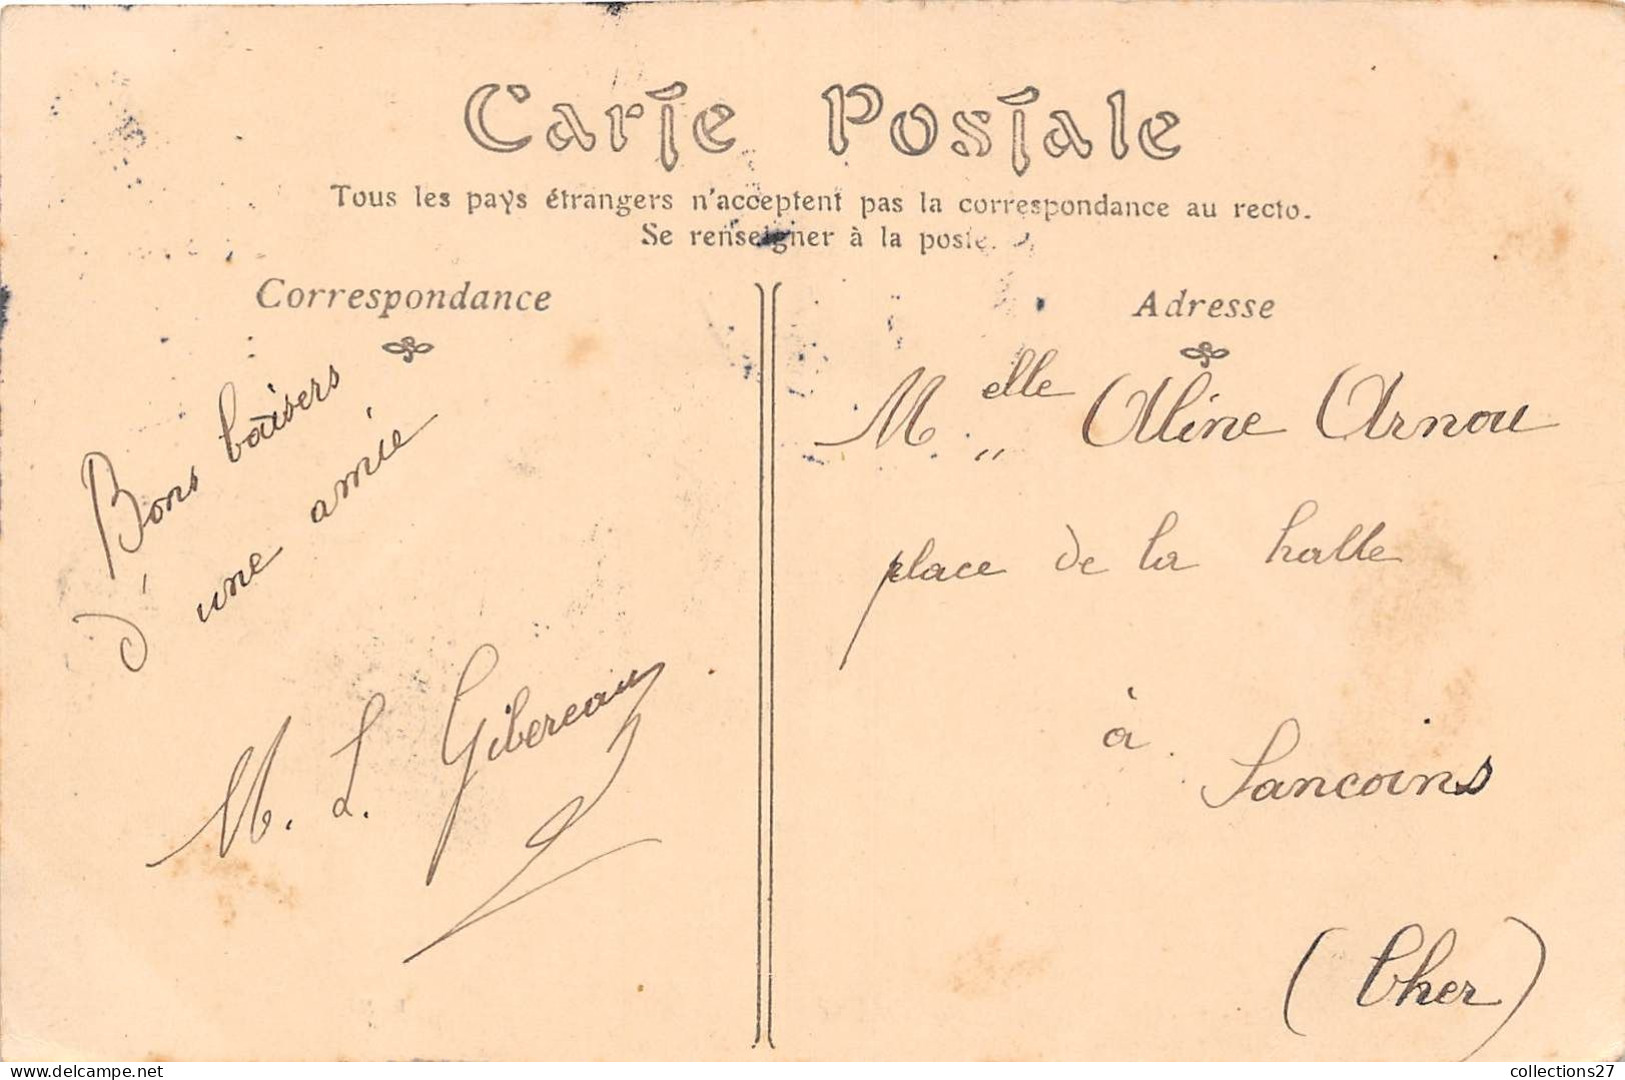 Carte Postale
Tous les pays étrangers n'acceptent pas la correspondance au recto.
Se renseigner à la poste.
Correspondance
Bons baisers
d'une amie
M. L. Gibereau
Adresse
Melle Aline Arnou
place de la halle
à
Sancoins
(Cher)
www.delcampe.net
collections27